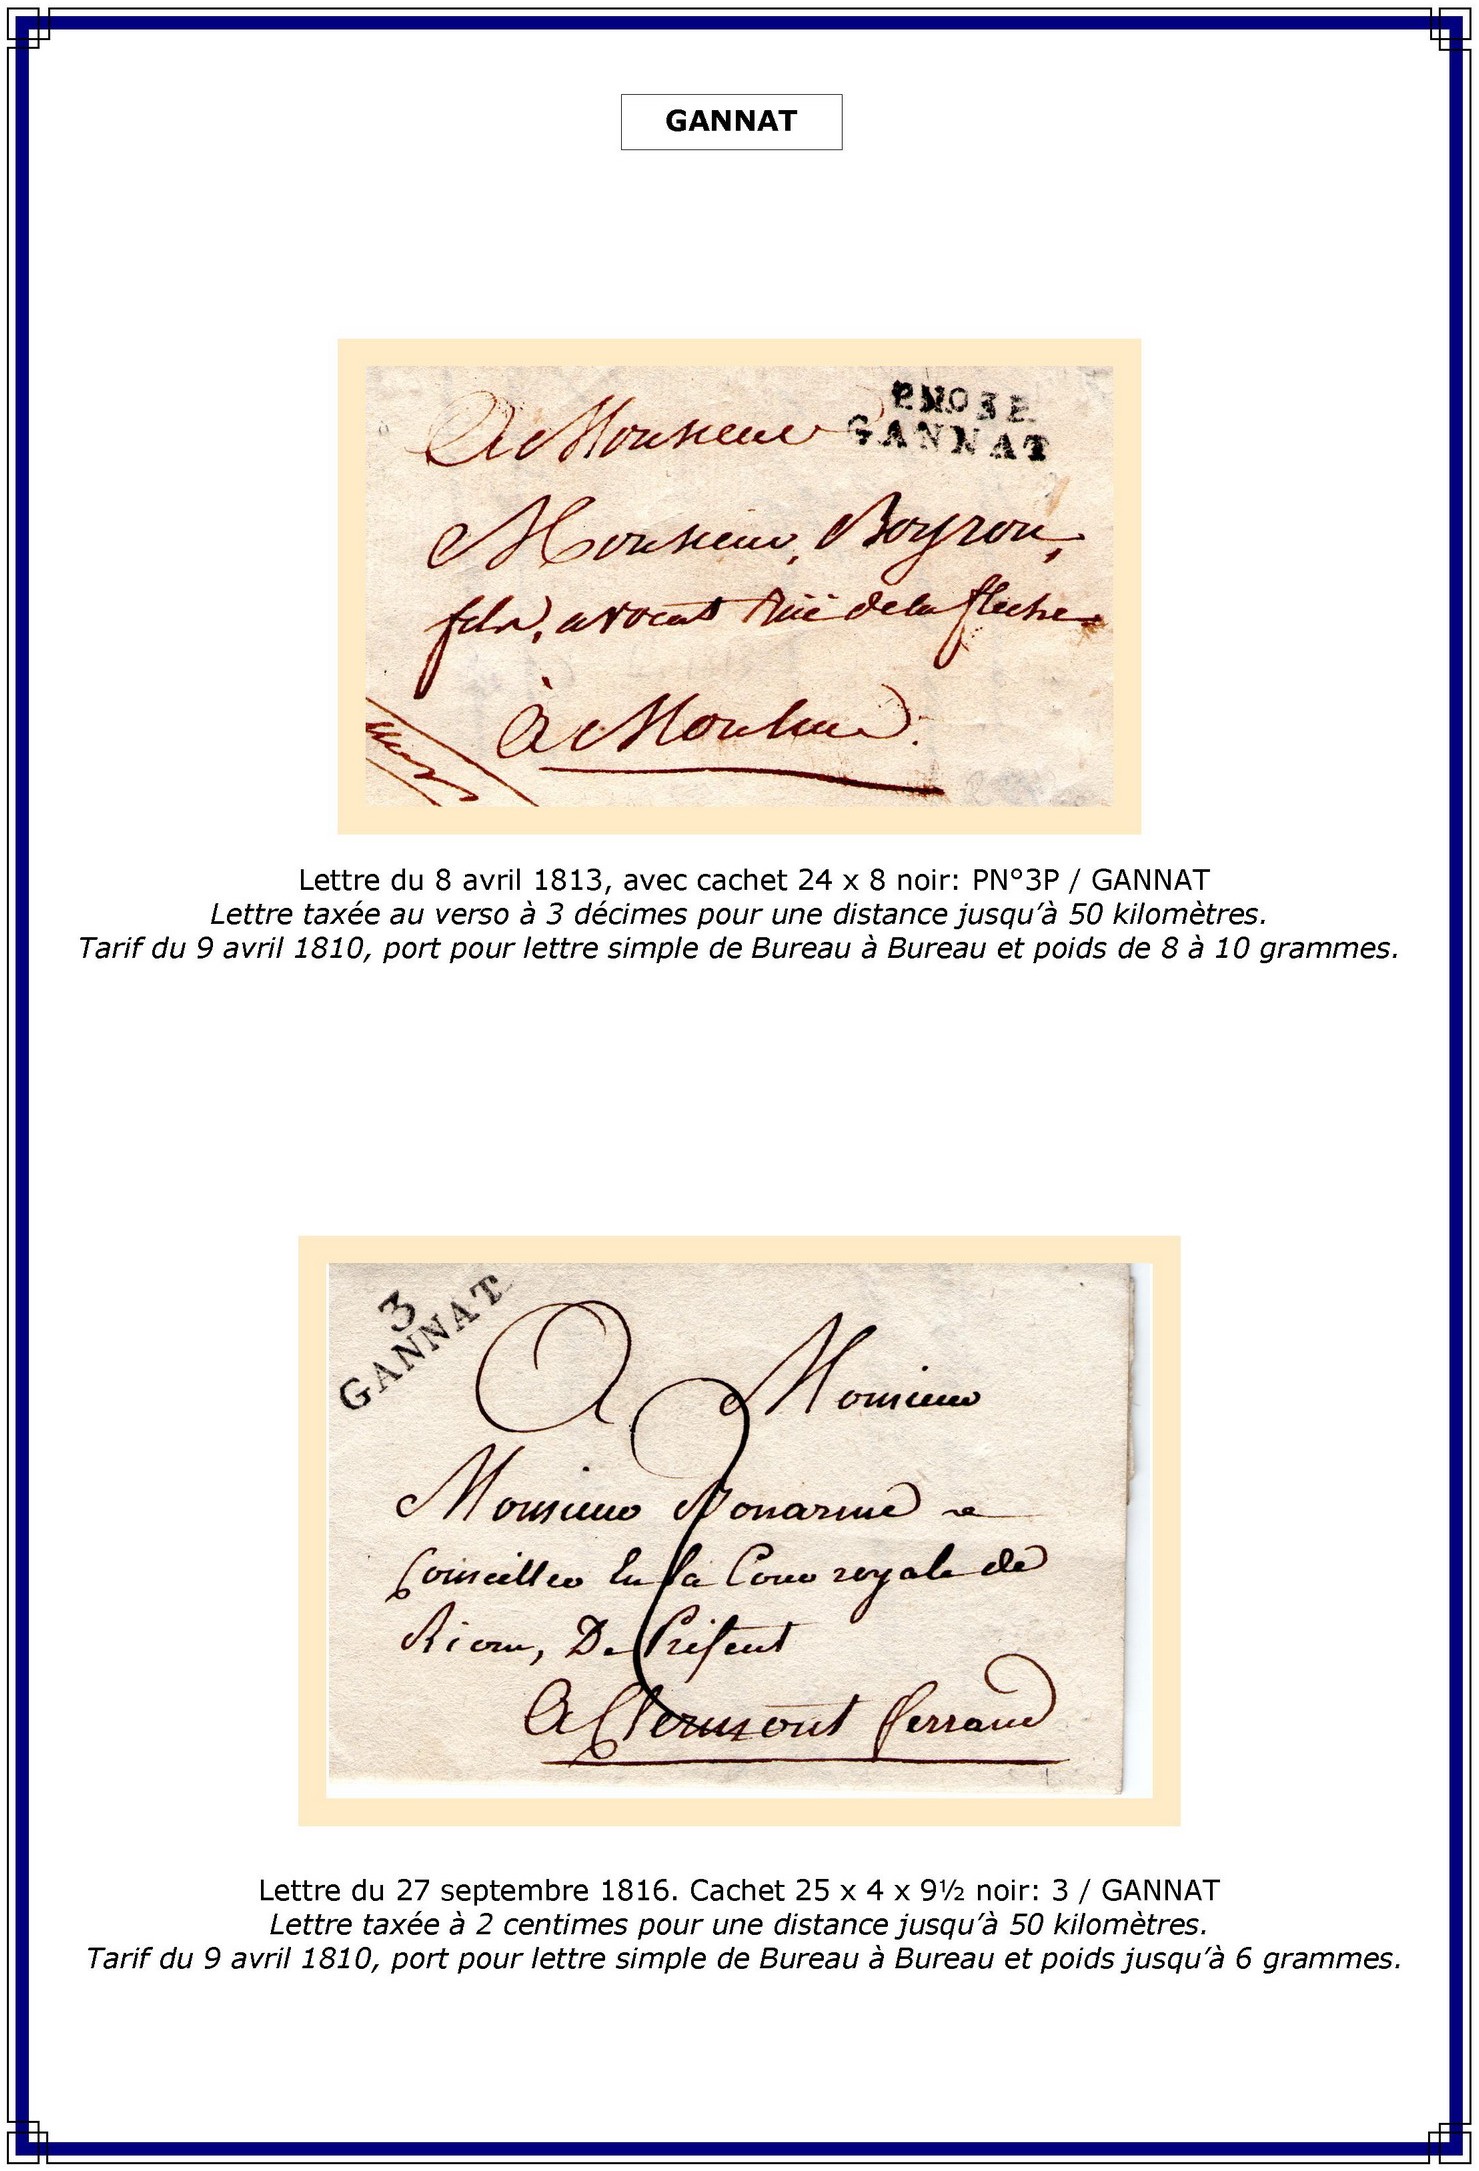 GANNAT
PNO3P
GANNAT
A Monsieur
Monsieur, Boyron,
fils, avocat Rüe de la fleche
à Moulins.
3
GANNAT
A Monsieur
2
Monsieur
Conseiller En la Cour royale de
Riom, De Présent
A Clermont ferrand
Lettre du 8 avril 1813, avec cachet 24 x 8 noir: PN°3P / GANNAT
Lettre taxée au verso à 3 décimes pour une distance jusqu’à 50 kilomètres.
Tarif du 9 avril 1810, port pour lettre simple de Bureau à Bureau et poids de 8 à 10 grammes.
Lettre du 27 septembre 1816. Cachet 25 x 4 x 9½ noir: 3 / GANNAT
Lettre taxée à 2 centimes pour une distance jusqu’à 50 kilomètres.
Tarif du 9 avril 1810, port pour lettre simple de Bureau à Bureau et poids jusqu’à 6 grammes.